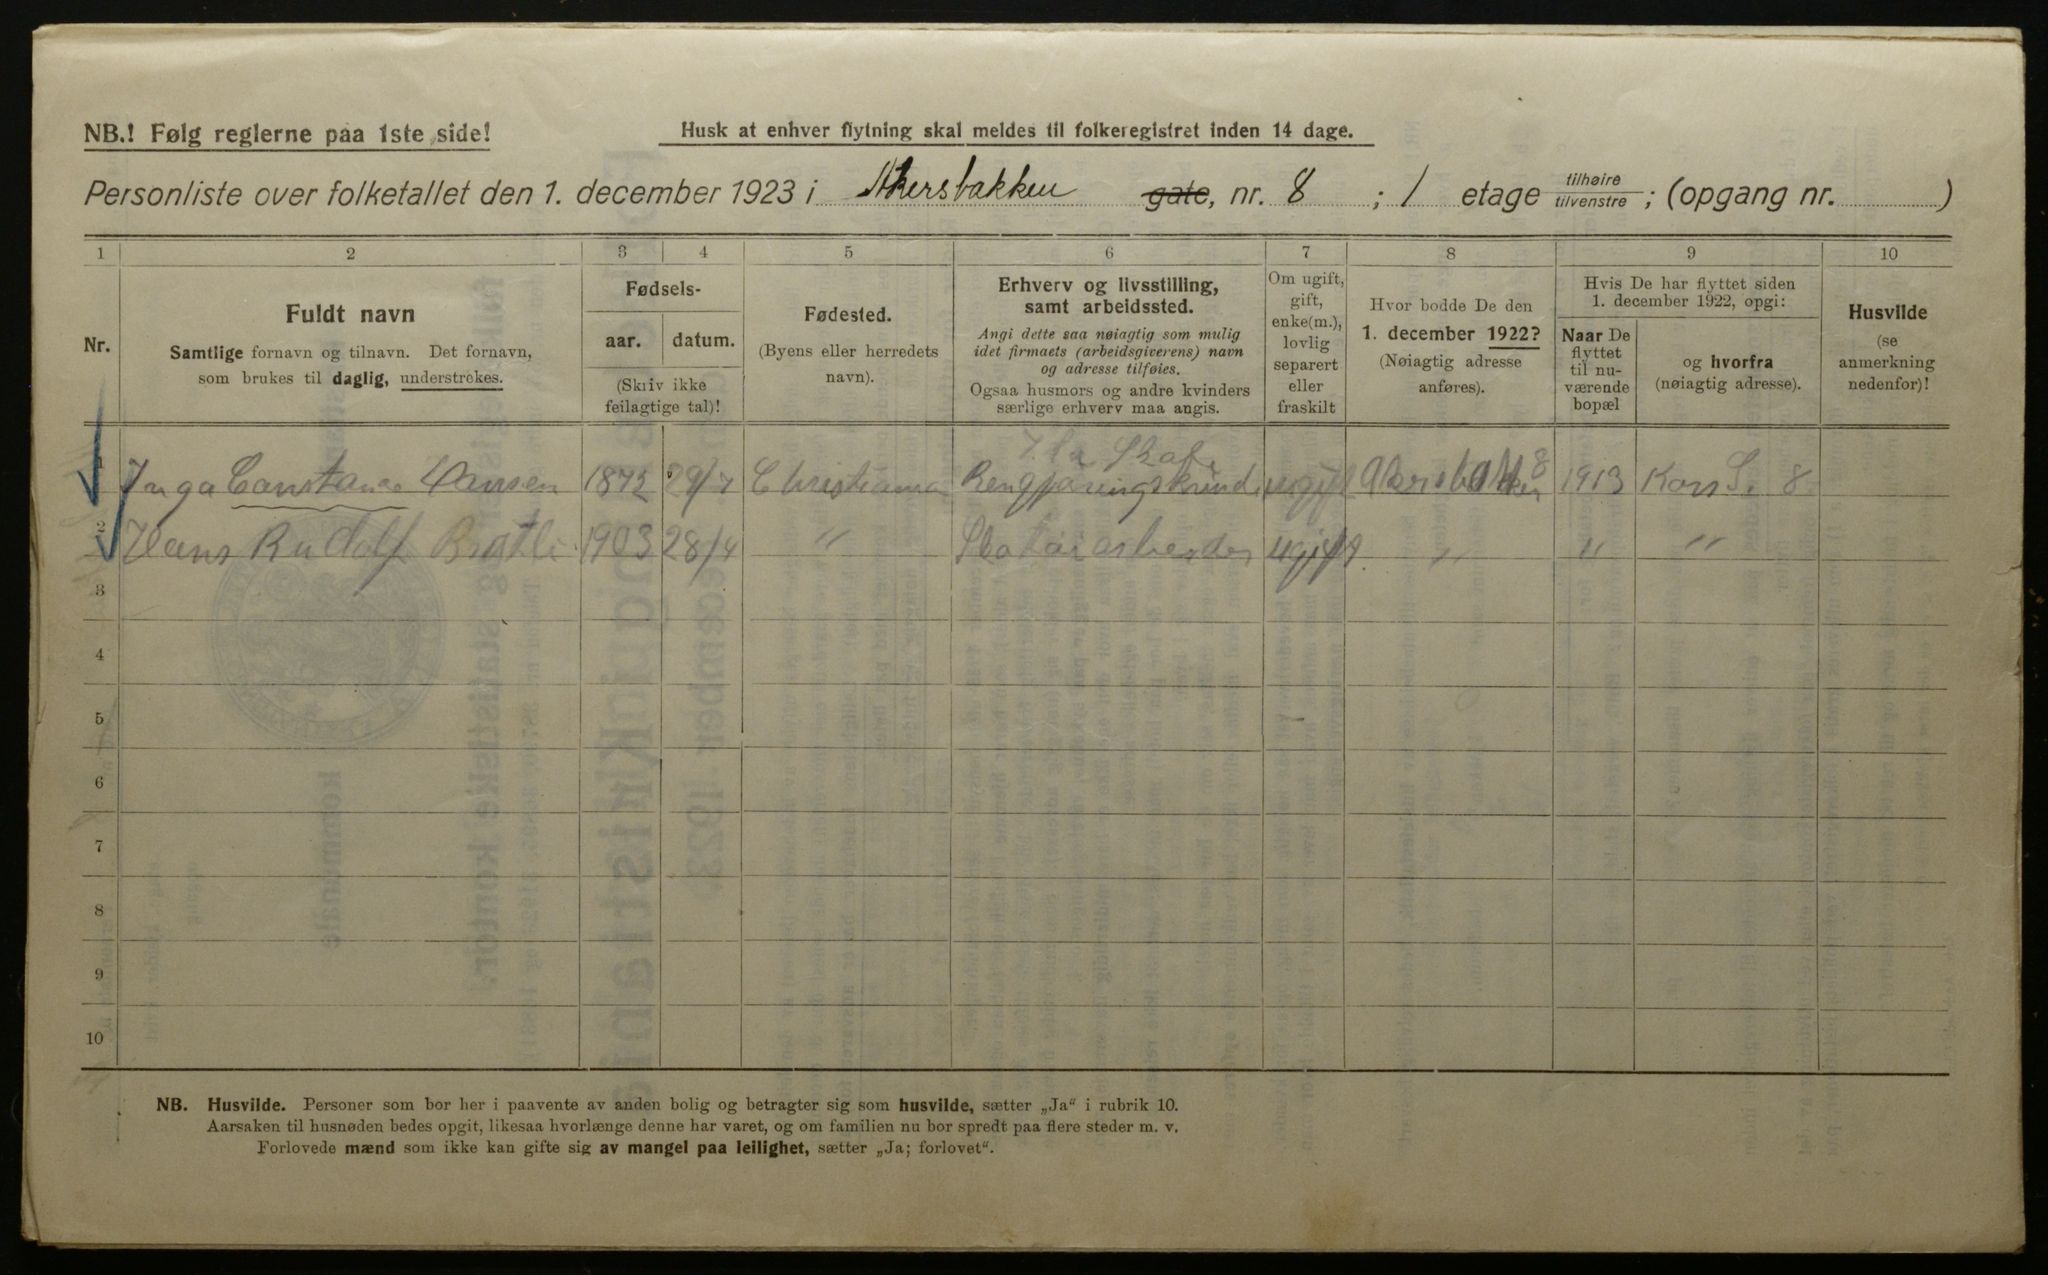 NB.! Følg reglerne paa 1ste side!
Husk at enhver flytning skal meldes til folkeregistret inden 14 dage.
Personliste over folketallet den 1. december 1923 i Akersbakken gate, nr. 8 ; 1 etage tilhøire tilvenstre ; (opgang nr. )
1 2 3 4 5 6 7 8 9 10
Nr.
Fuldt navn
Samtlige fornavn og tilnavn. Det fornavn,
som brukes til daglig, understrekes.
Fødsels-
aar. datum.
(Skriv ikke
feilagtige tal)!
Fødested.
(Byens eller herredets
navn).
Erhverv og livsstilling,
samt arbeidssted.
Angi dette saa nøiagtig som mulig
idet firmaets (arbeidsgiverens) navn
og adresse tilføies.
Ogsaa husmors og andre kvinders
særlige erhverv maa angis.
Om ugift,
gift,
enke(m.),
lovlig
separert
eller
fraskilt
Hvor bodde De den
1. december 1922?
(Nøiagtig adresse
anføres).
Hvis De har flyttet siden
1. december 1922, opgi:
Naar De
flyttet
til nu-
værende
bopæl
og hvorfra
(nøiagtig adresse).
Husvilde
(se
anmerkning
nedenfor)!
Inga Constance Hansen 1872 29/7 Christiania Rengjøringskvinde ugift Akersbakken 8 1913 Kors 8
2 Hans Rudolf Bratli 1903 28/4 " arbeider ugift. " " "
3
4
5
6
7
8
9
10
NB. Husvilde. Personer som bor her i paavente av anden bolig og betragter sig som husvilde, sætter „Ja“ i rubrik 10.
Aarsaken til husnøden bedes opgit, likesaa hvorlænge denne har varet, og om familien nu bor spredt paa flere steder m. v.
Forlovede mænd som ikke kan gifte sig av mangel paa leilighet, sætter „Ja; forlovet“.